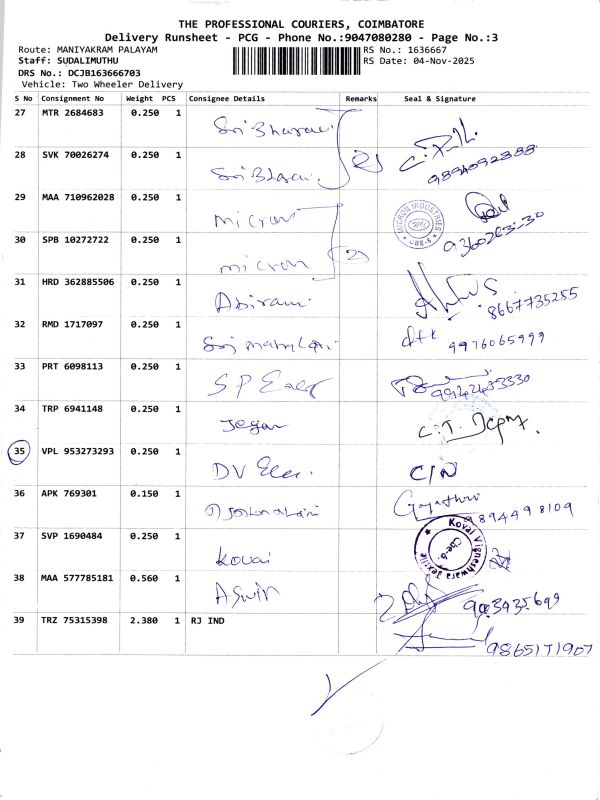 THE PROFESSIONAL COURIERS, COIMBATORE
Delivery Runsheet - PCG - Phone No.:9047080280 - Page No.:3
Route: MANIYAKRAM PALAYAM RS No.: 1636667
Staff: SUDALIMUTHU RS Date: 04-Nov-2025
DRS No.: DCJB163666703
Vehicle: Two Wheeler Delivery
S No Consignment No Weight PCS Consignee Details Remarks Seal & Signature
27 MTR 2684683 0.250 1
28 SVK 70026274 0.250 1
29 MAA 710962028 0.250 1 micron MICRON INDUSTRIES CBE-6
30 SPB 10272722 0.250 1 micron
31 HRD 362885506 0.250 1 Abirami 8667735255
32 RMD 1717097 0.250 1 9976065999
33 PRT 6098113 0.250 1 S P
34 TRP 6941148 0.250 1 Jegan
35 VPL 953273293 0.250 1 DV Elec. C/N
36 APK 769301 0.150 1 Gayathri 9894498109
37 SVP 1690484 0.250 1 Kovai Kovai Vigneshwara Textile Cbe-6.
38 MAA 577785181 0.560 1 Aswin
39 TRZ 75315398 2.380 1 RJ IND 9865171907